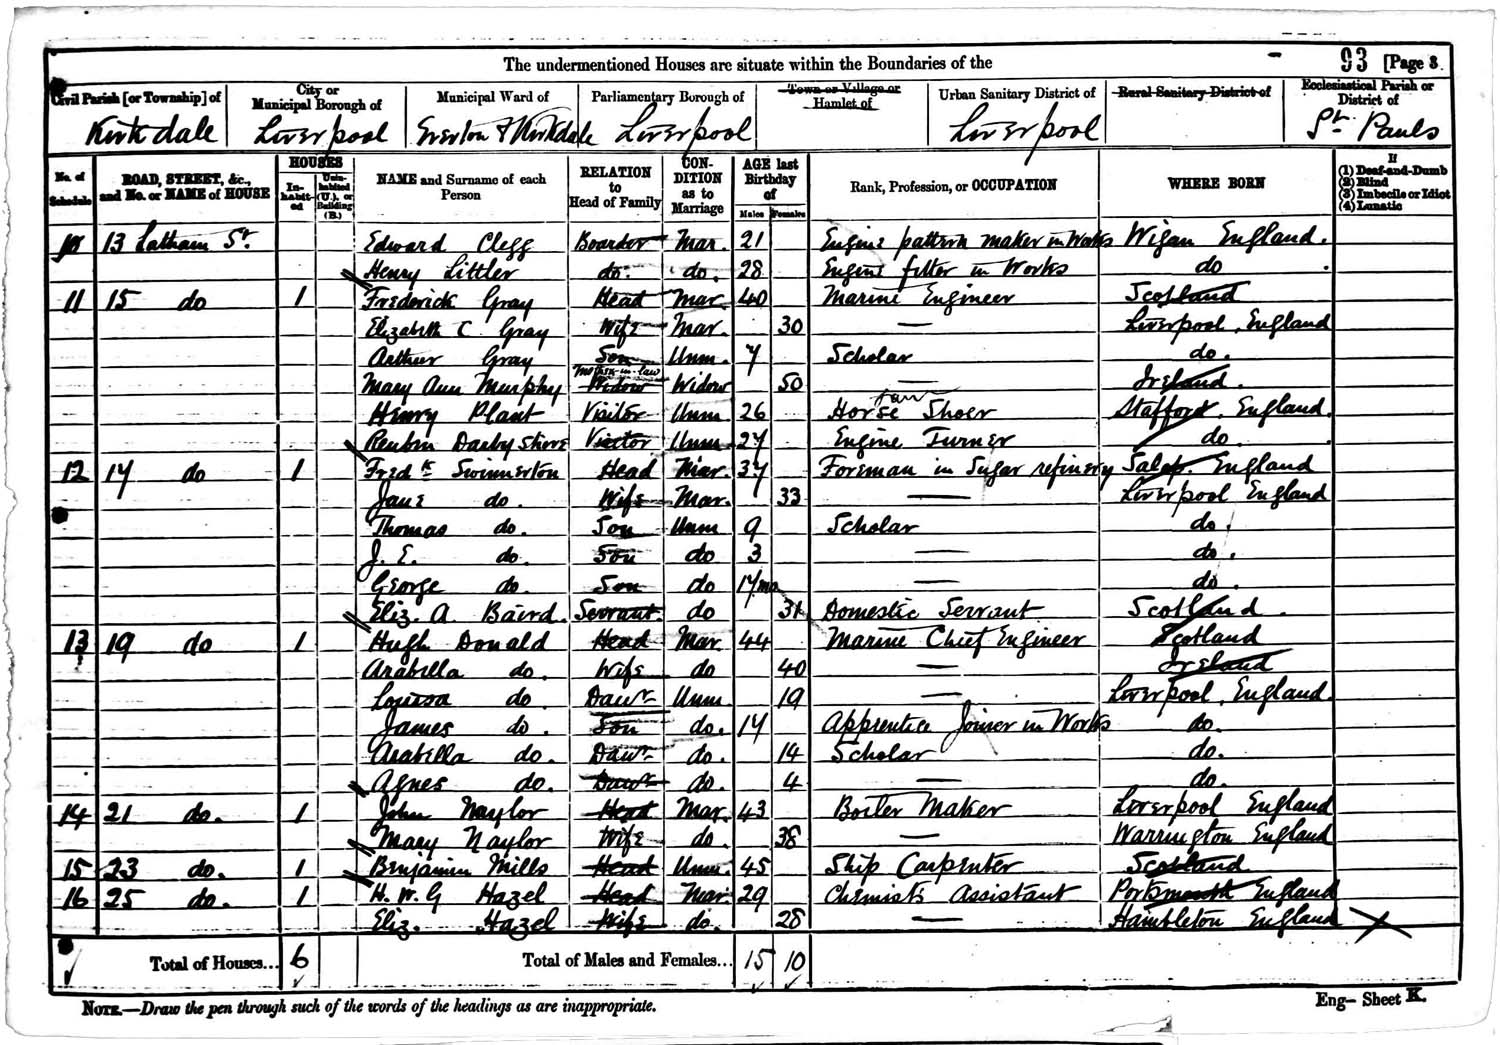 The undermentioned Houses are situate within the Boundaries of the
93 [Page 8.
Civil Parish [or Township] of Kirkdale
City or Municipal Borough of Liverpool
Municipal Ward of Everton & Kirkdale
Parliamentary Borough of Liverpool
Town or Village or Hamlet of
Urban Sanitary District of Liverpool
Rural Sanitary District of
Ecclesiastical Parish or District of St. Pauls
No. of Schedule
ROAD, STREET, &c., and No. or NAME of HOUSE
HOUSES
Inhabited
Uninhabited (U.), or Building (B.)
NAME and Surname of each Person
RELATION to Head of Family
CONDITION as to Marriage
AGE last Birthday of
Males Females
Rank, Profession, or OCCUPATION
WHERE BORN
If
(1) Deaf-and-Dumb
(2) Blind
(3) Imbecile or Idiot
(4) Lunatic
10 13 Latham St. Edward Clegg Boarder Mar. 21 Engine pattern maker in Works Wigan England.
Henry Littler do. do. 28 Engine fitter in Works do
11 15 do 1 Frederick Gray Head Mar. 40 Marine Engineer Scotland
Elizabeth C Gray Wife Mar. 30 — Liverpool, England
Arthur Gray Son Unm. 7 Scholar do.
Mary Ann Murphy Mother-in-law Widow Widow 50 — Ireland.
Henry Plant Visitor Unm 26 Horse Shoer Stafford, England.
Reuben Darbyshire Visitor Unm. 27 Engine Turner do
12 17 do 1 Fredk Swinnerton Head Mar. 37 Foreman in Sugar refinery Salop. England
Jane do. Wife Mar. 33 — Liverpool England
Thomas do. Son Unm 9 Scholar do.
J. E. do. Son do 3 — do.
George do. Son do 17/mo — do.
Eliz. A. Baird. Servant. do 31 Domestic Servant Scotland.
13 19 do 1 Hugh Donald Head Mar. 44 Marine Chief Engineer Scotland
Arabella do. Wife do 40 — Ireland
Louisa do. Dawr Unm. 19 — Liverpool, England.
James do. Son do. 17 Apprentice Joiner in Works do.
Arabella do. Dawr do. 14 Scholar do.
Agnes do. Dawr do. 4 — do.
14 21 do. 1 John Naylor Head Mar. 43 Boiler Maker Liverpool England
Mary Naylor Wife do. 38 — Warrington England
15 23 do. 1 Benjamin Mills Head Unm. 45 Ship Carpenter Scotland.
16 25 do. 1 H. W. G Hazel Head Mar. 29 Chemists Assistant Portsmouth England
Eliz. Hazel Wife do. 28 — Hambleton England
Total of Houses... 6 Total of Males and Females... 15 10
NOTE.—Draw the pen through such of the words of the headings as are inappropriate.
Eng— Sheet K.